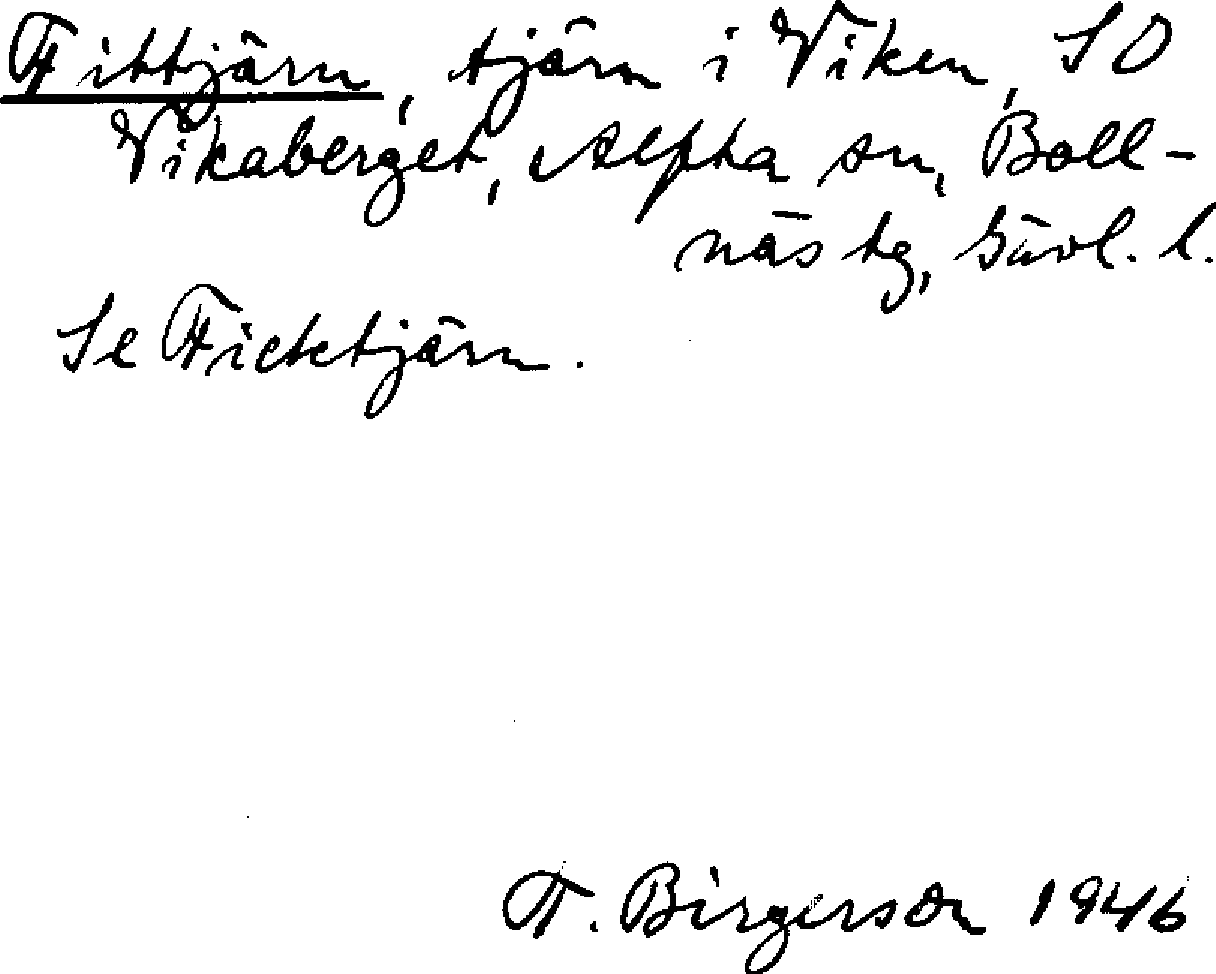 Fittjärn, tjärn i Viken, SO
Vikaberget, Alfta sn, Boll-
näs tg, Gävl. l.
Se Ficktjärn.
F. Birgerson 1946